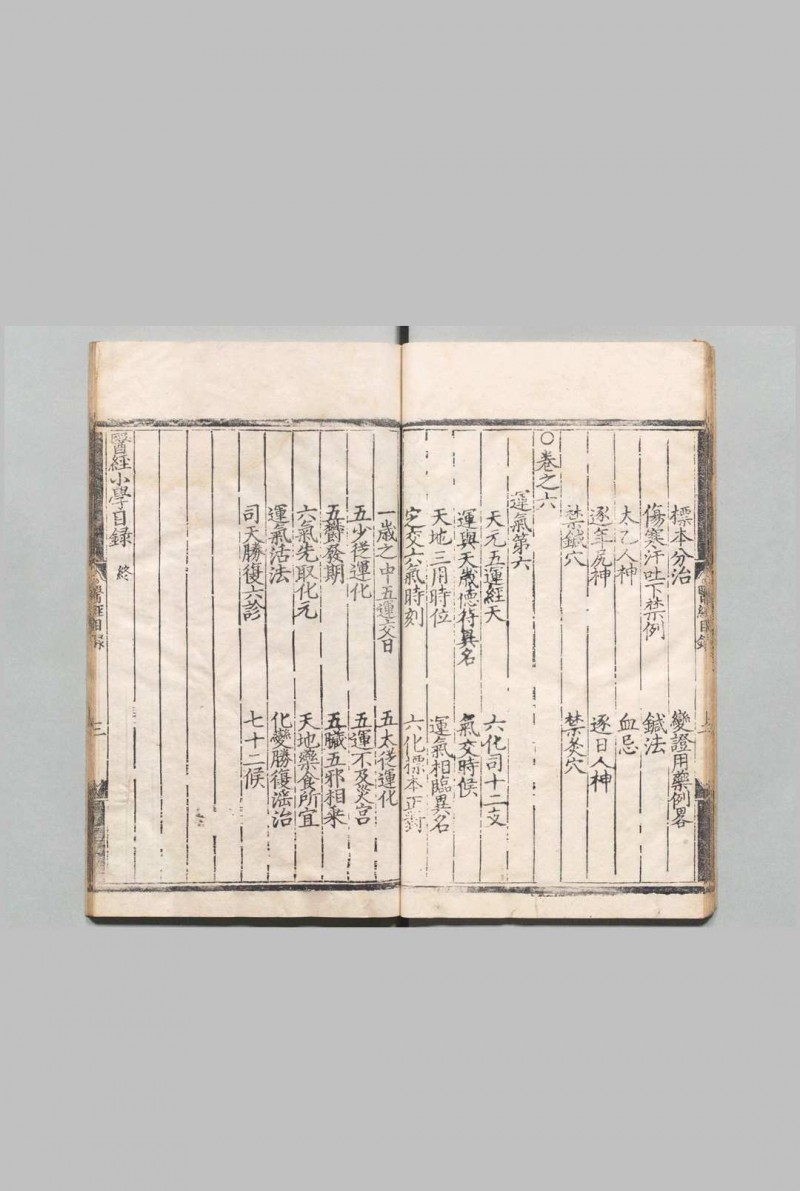 標本分治　變證用藥例畧
傷寒汗吐下禁例　鍼法
太乙人神　血忌
逐年尻神　逐日人神
禁鍼穴　禁灸穴
○卷之六
運氣第六
天元五運經天　六化司十二支
運與天歲德符異名　氣交時候
天地三周時位　運氣相臨異名
定交六氣時刻　六化標本正對
一歲之中五運交日　五太從運化
五少從運化　五運不及災宮
五鬱發期　五臟五邪相乘
六氣先取化元　天地藥食所宜
運氣活法　化變勝復淫治
司天勝復六診　七十二候
醫經小學目録 終
醫經目録
三